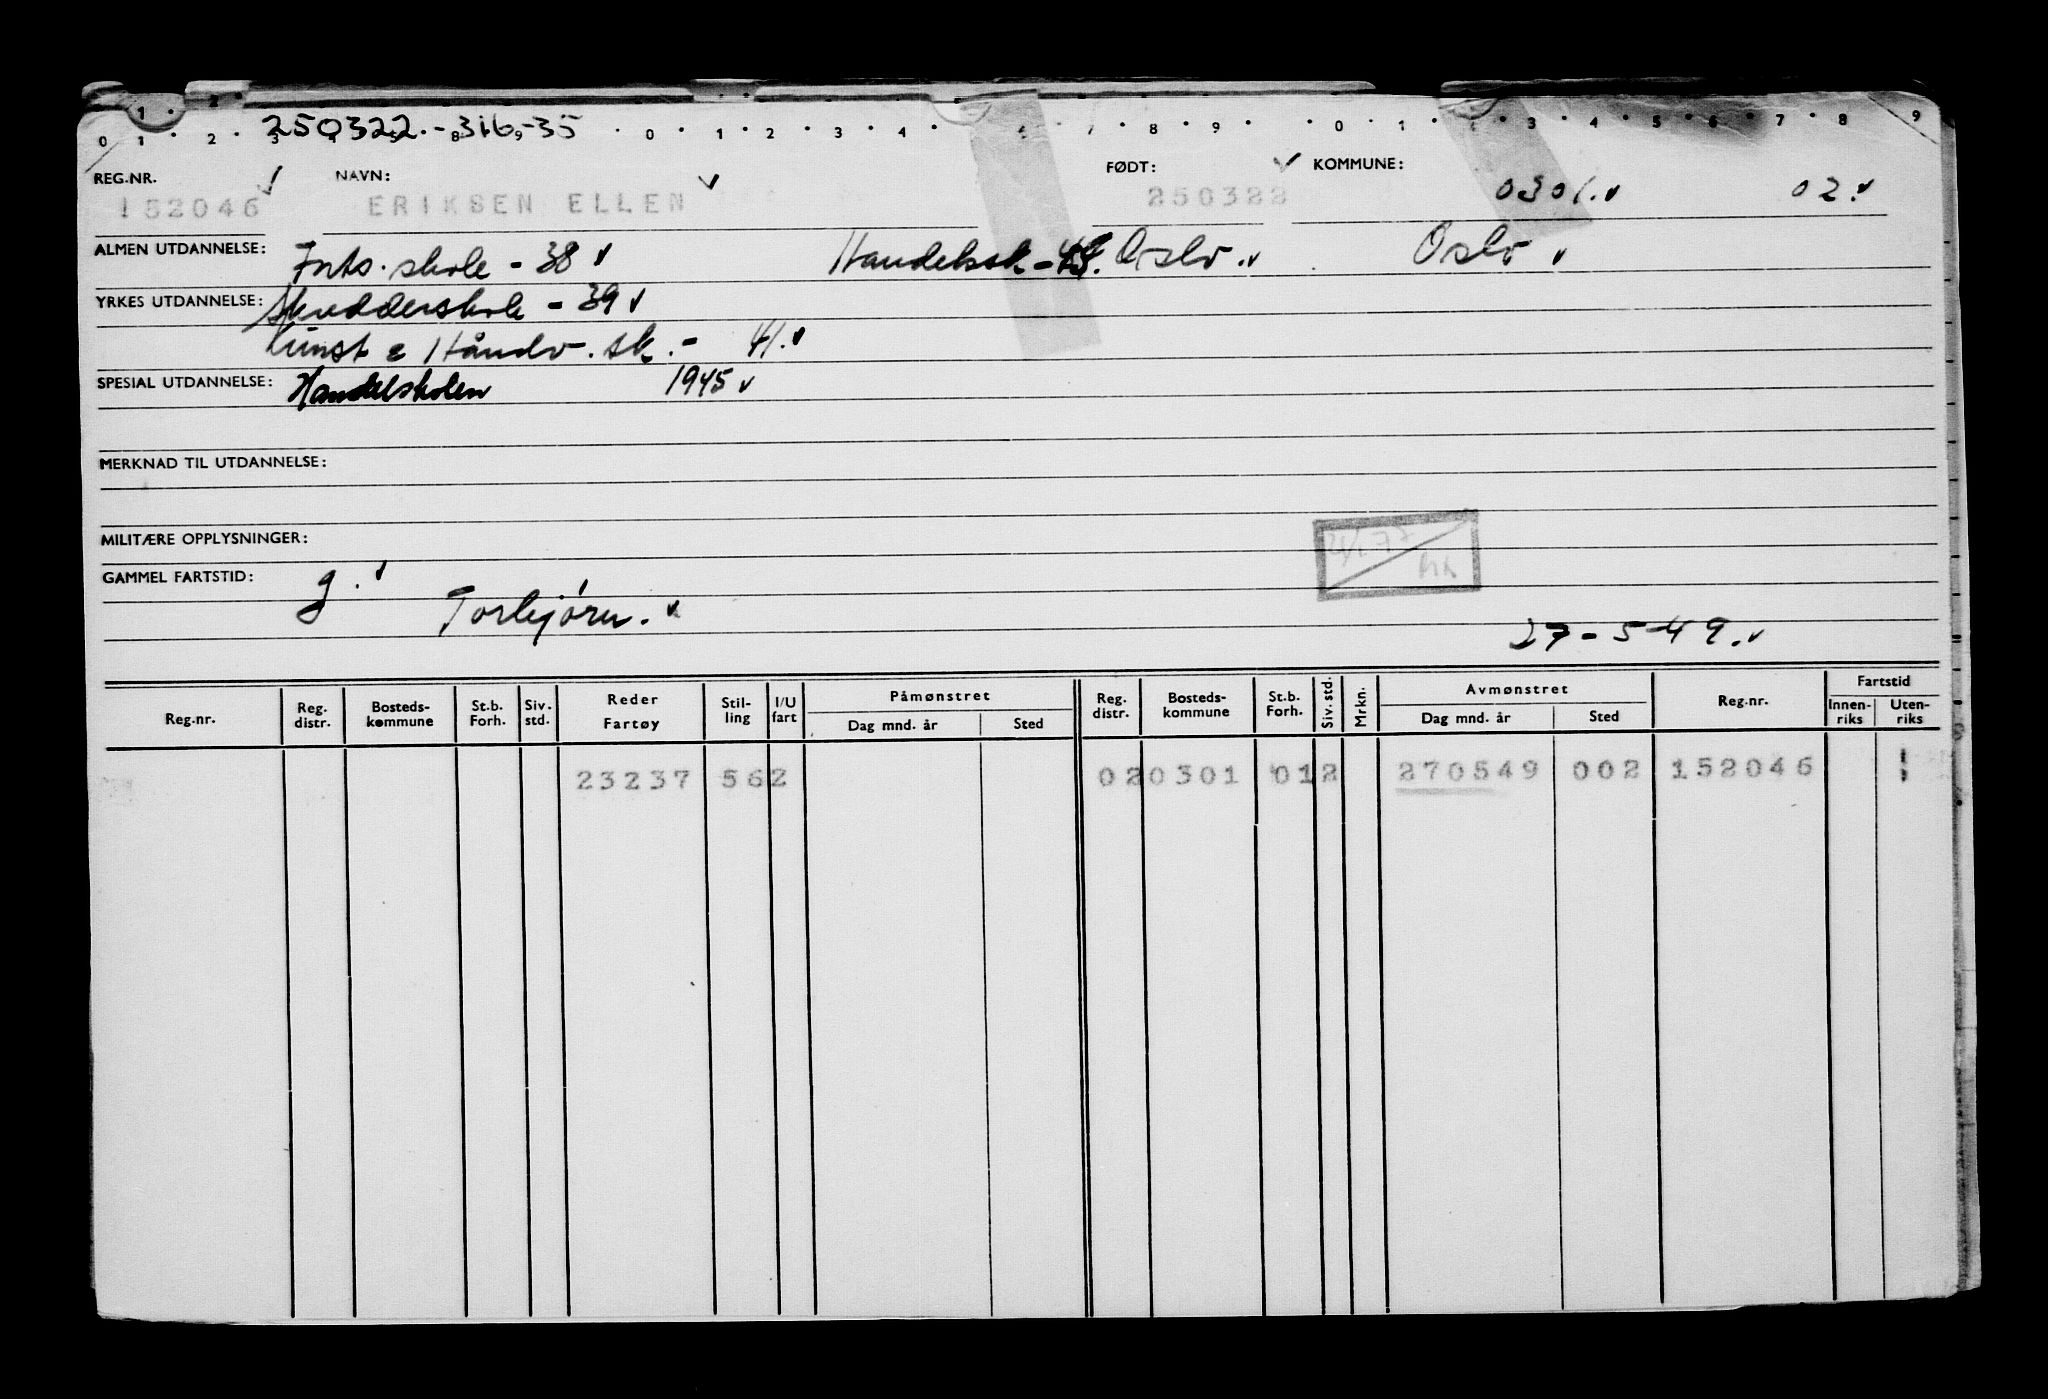 250322.-316-35
REG.NR. NAVN: FØDT: KOMMUNE:
152046 ERIKSEN ELLEN 250322 0301. 02.
ALMEN UTDANNELSE: Forts. skole - 38 Handelssk - 44. Oslo. Oslo
YRKES UTDANNELSE: Skredderskole - 39
Kunst & Håndv. sk. - 41.
SPESIAL UTDANNELSE: Handelskolen 1945
MERKNAD TIL UTDANNELSE:
MILITÆRE OPPLYSNINGER:
GAMMEL FARTSTID: g.
Torbjörn. 27-5-49.
Reg.nr. Reg. distr. Bosteds-kommune St.b. Forh. Siv. std. Reder Fartøy Stil-ling I/U fart Påmønstret Dag mnd. år Sted Reg. distr. Bosteds-kommune St.b. Forh. Siv. std. Mrkn. Avmønstret Dag mnd. år Sted Reg.nr. Fartstid Innen-riks Uten-riks
23237 562 020301 012 270549 002 152046